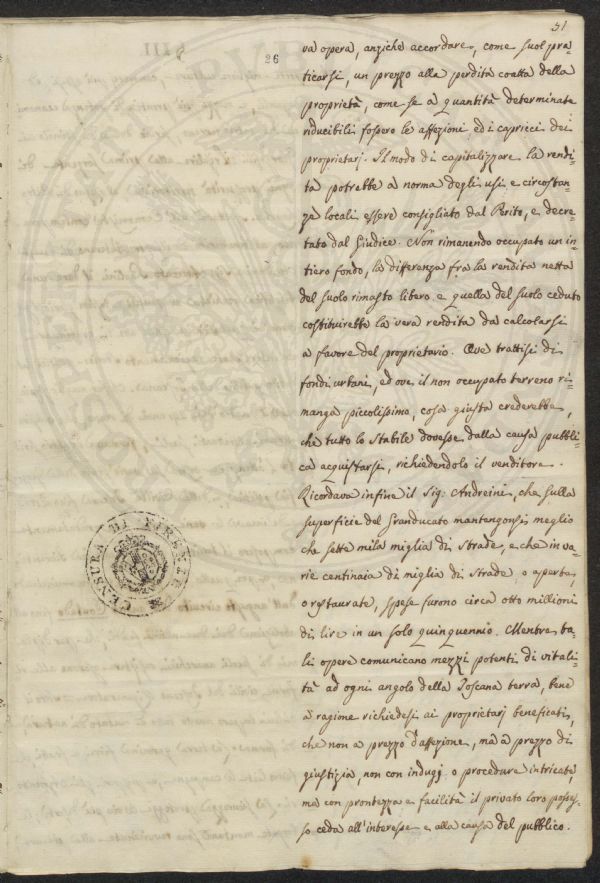 51
26
va opera, anzichè accordare, come suol pra=
ticarsi, un prezzo alla perdita coatta della
proprietà, come se a quantità determinate
riducibili fossero le affezioni, ed i capricci dei
proprietarj. Il modo di capitalizzare la rendi=
ta potrebbe a norma degli usi e circostan=
ze locali essere consigliato dal Perito, e decre
tato dal Giudice. Non rimanendo occupato un in=
tiero fondo, la differenza fra la rendita netta
del suolo rimasto libero e quella del suolo ceduto
costituirebbe la vera rendita da calcolarsi
a favore del proprietario. Ove trattisi di
fondi urbani, ed ove il non occupato terreno ri=
manga piccolissimo, cosa giusta crederebbe,
che tutto lo stabile dovesse dalla causa pubbli=
ca acquistarsi, richiedendolo il venditore.
Ricordava infine il Sig: Andreini, che sulla
superficie del Granducato mantengonsi meglio
che sette mila miglia di Strade, e che in va=
rie centinaia di miglia di Strade, o aperte,
o restaurate, spese furono circa otto millioni
di lire in un solo quinquennio. Mentre ta=
li opere comunicano mezzi potenti di vitali=
tà ad ogni angolo della Toscana terra, bene
a ragione richiedesi ai proprietarj beneficati,
che non a prezzo d'affezione, ma a prezzo di
giustizia, non con indugj o procedure intricate,
ma con prontezza e facilità il privato loro posses=
so ceda all'interesse e alla causa del pubblico.
CENSURA DI FIRENZE